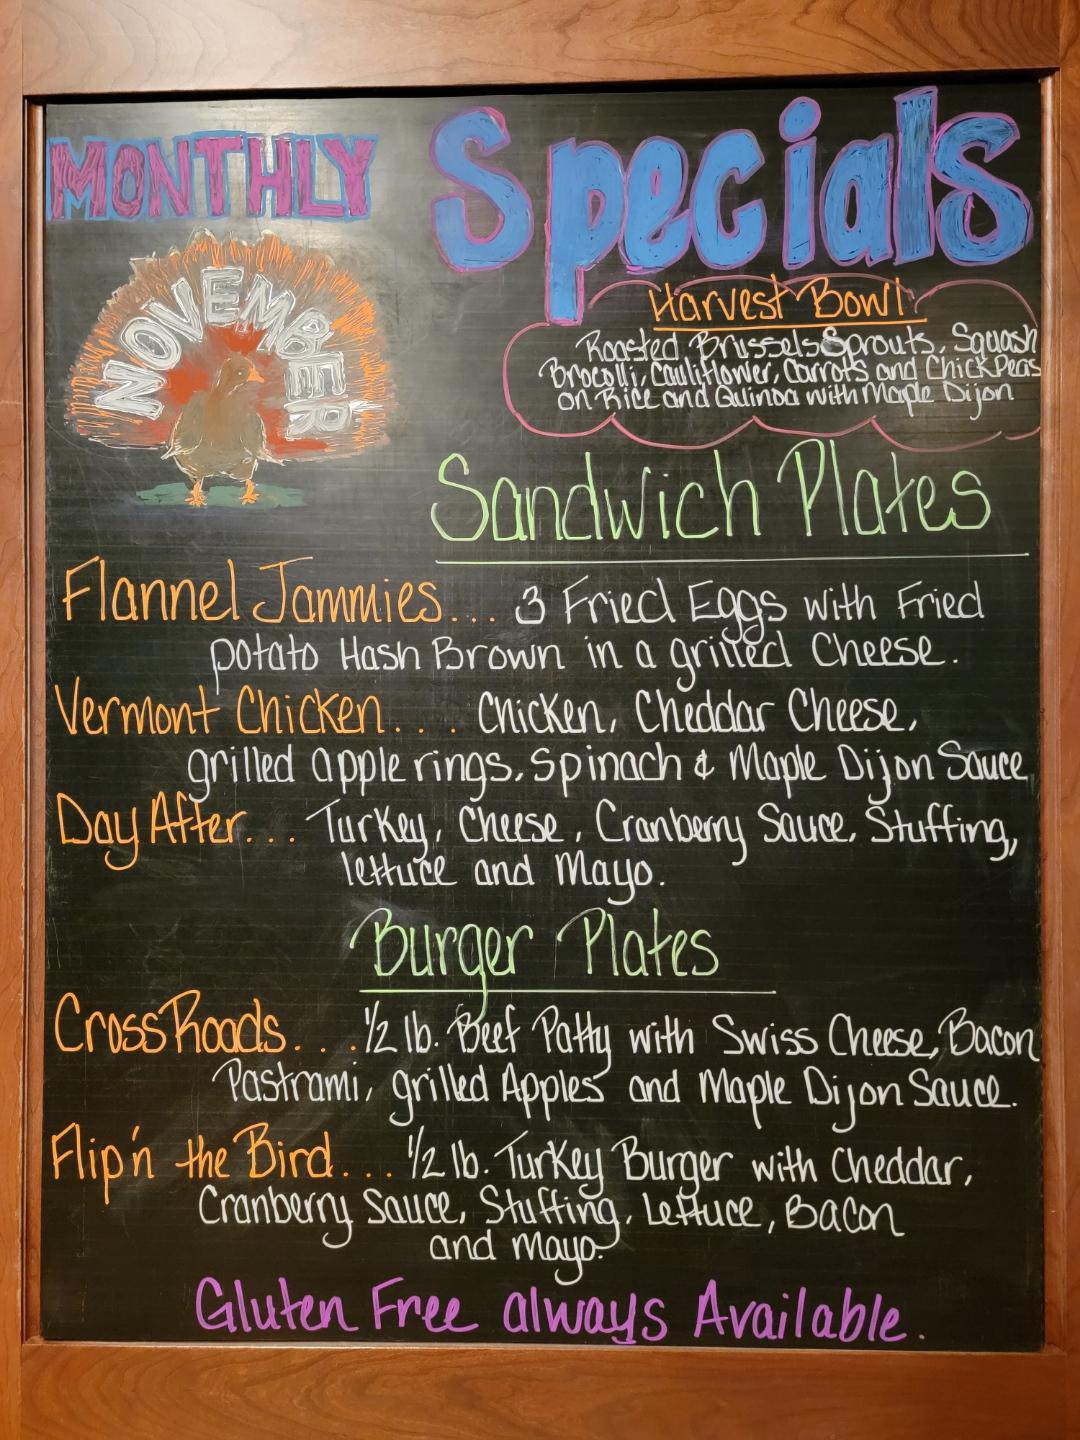 MONTHLY
Specials
NOVEMBER
Harvest Bowl
Roasted Brussels Sprouts, Squash
Brocolli, Cauliflower, Carrots and ChickPeas
on Rice and Quinoa with Maple Dijon
Sandwich Plates
Flannel Jammies... 3 Fried Eggs with Fried
potato Hash Brown in a grilled Cheese.
Vermont Chicken.... Chicken, Cheddar Cheese,
grilled apple rings, Spinach & Maple Dijon Sauce
Day After... Turkey, Cheese, Cranberry Sauce, Stuffing,
lettuce and Mayo.
Burger Plates
Cross Roads... 1/2 lb. Beef Patty with Swiss Cheese, Bacon
Pastrami, grilled Apples and Maple Dijon Sauce.
Flip'n the Bird... 1/2 lb. Turkey Burger with Cheddar,
Cranberry Sauce, Stuffing, Lettuce, Bacon
and Mayo.
Gluten Free always Available.